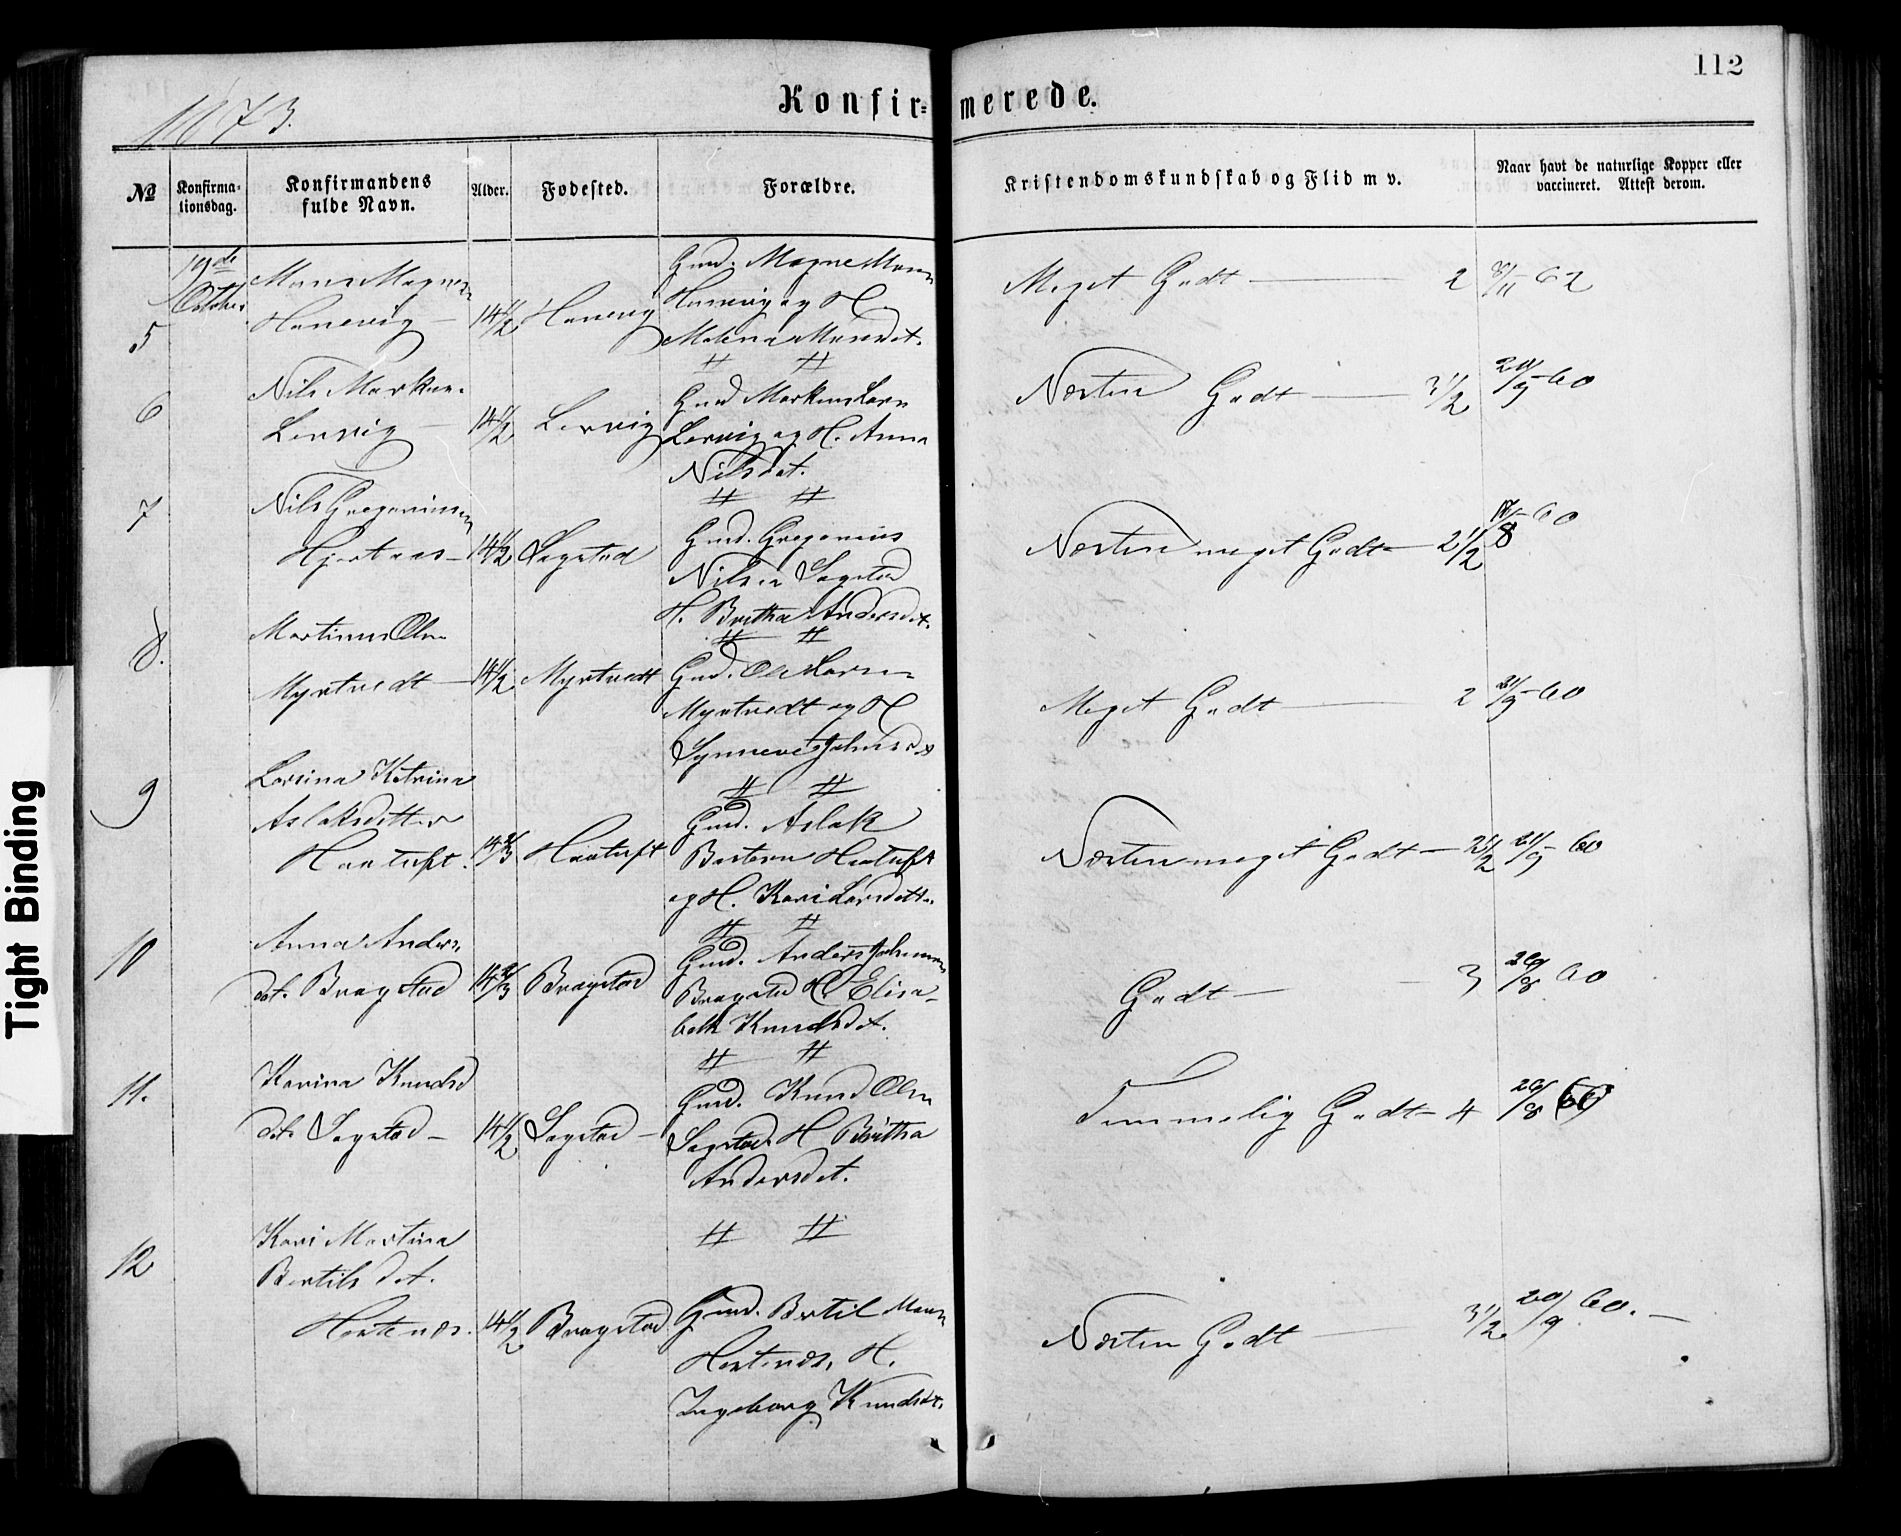 112
1873.
Konfir=merede.
No
Konfirma-
tionsdag.
Konfirmandens
fulde Navn.
Alder.
Fødested.
Forældre.
Kristendomskundskab og Flid m v.
Naar havt de naturlige Kopper eller
vaccineret. Attest derom.
5
19de
October
Mons Magnesen
Hanevig
14 1/2
Hanevig
Gmd. Magne Mons
Hanevig og H.
Malena Monsdat.
Meget Godt 2
8/11 62
6
Nils Markus.
Lervig
14 1/2
Lervig
Gmd Markus Lars
Lervig og H. Anna
Nilsdat.
Næsten Godt 3 1/2
20/9 60
7
Nils Gregoriussen
Hjertaas
14 1/2
Sagstad
Gmd. Gregorius
Nilsen Sagstad
H. Britha Andersdat.
Næsten meget Godt 2 1/2
17/8 60
8.
Martinus Olsn
Myrtvedt
14 1/2
Myrtvedt
Gmd. Ole Larsen
Myrtvedt og H
Synneve Johnsd
Meget Godt 2
21/9 60
9
Larsina Katrina
Aslaksdatter
Haatuft.
14 2/3
Haatuft
Gmd. Aslak
Haatuft
og H. Kari Larsdatter
Næsten meget Godt 2 1/2
21/9 60
10
Anna Anders
dat. Bragstad
14 2/3
Bragstad
Gmd. Anders Johannes
Bragstad H. Elisa-
beth Knudsdat.
Godt 3
26/8 60
11.
Karina Knuds
dat. Sagstad
14 1/2
Sagstad
Gmd. Knud Olsn
Sagstad H Britha
Andersdat.
Temmelig Godt 4
26/8 60
12
Kari Martina
Bertilsdat.
Hertenæs.
14 1/2
Bragstad
Gmd. Bertil Mons
Hertenæs, H.
Ingeborg Knudsdt.
Næsten Godt 3 1/2
20/9 60.
Tight Binding